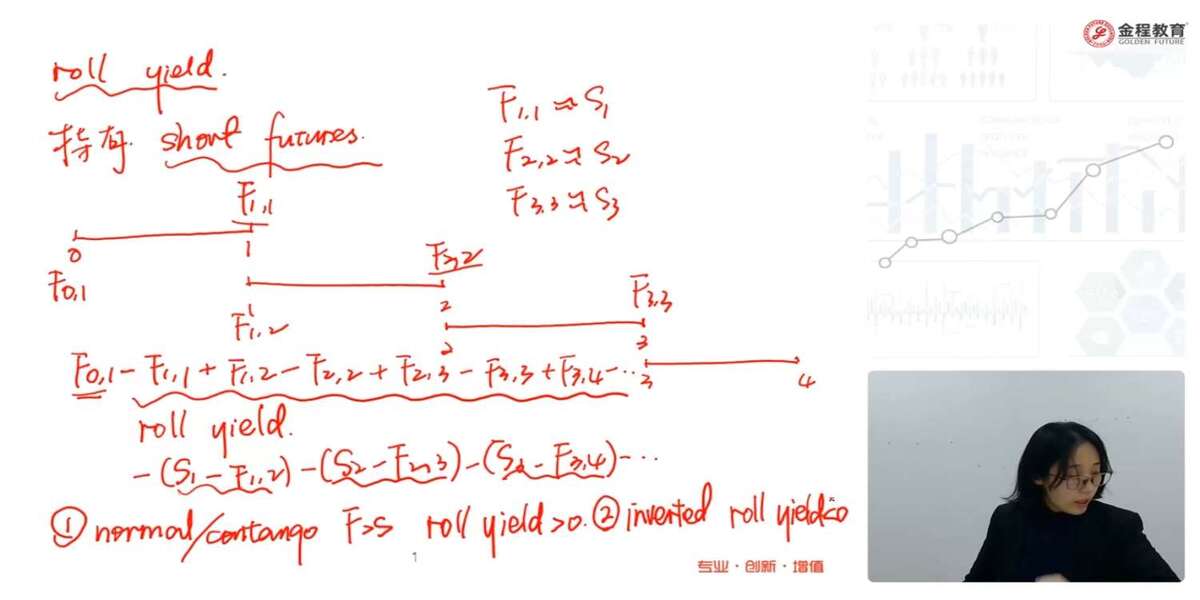 金程教育
GOLDEN FUTURE
roll yield.
持有 short futures.
F1,1 ≈ S1
F2,2 ≈ S2
F3,3 ≈ S3
F1,1
0 1
F0,1
F2,2
1 2
F1,2
F3,3
2 3
F0,1 - F1,1 + F1,2 - F2,2 + F2,3 - F3,3 + F3,4 - ...
3 4
roll yield.
-(S1 - F1,2) -(S2 - F2,3) -(S3 - F3,4) - ...
① normal/contango F>S roll yield >0. ② inverted roll yield<0
1
专业·创新·增值